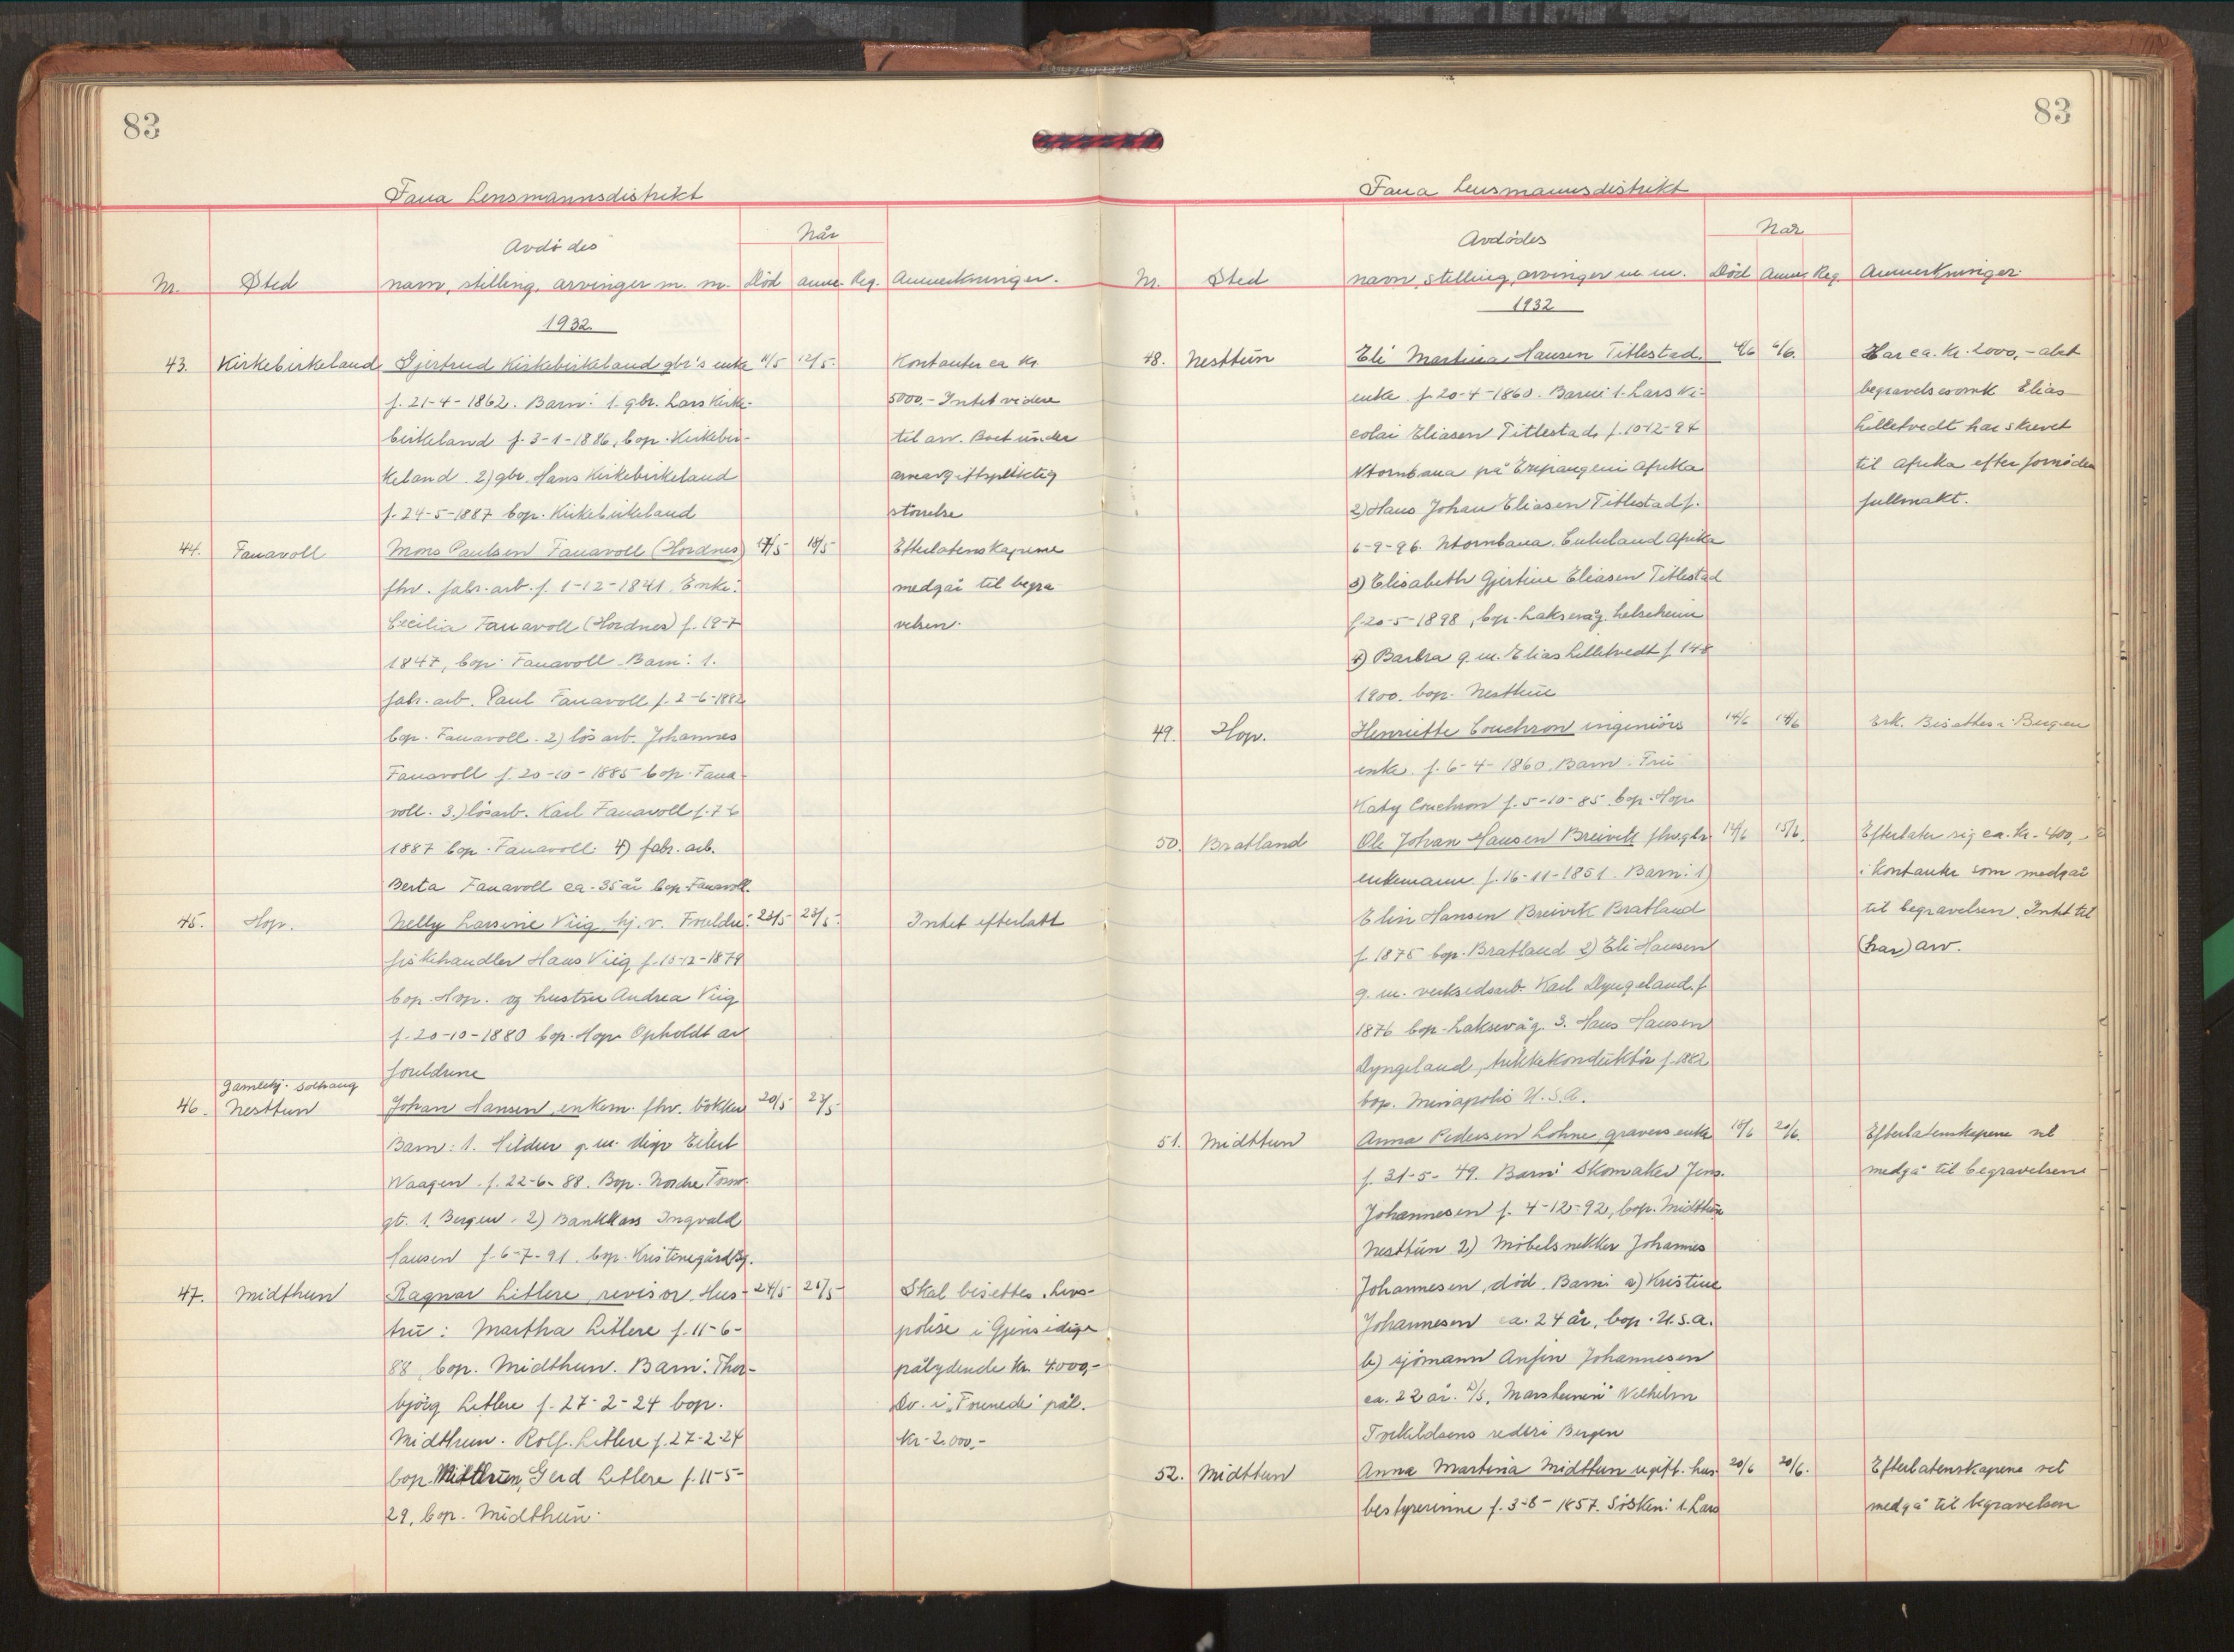 83
Fana Lensmannsdistrikt
Når
Avdødes
Nr. Sted navn, stilling, arvinger m. m. Død anm. Reg. Anmerkninger.
1932.
43. Kirkebirkeland Gjertrud Kirkebirkeland gbr's enke 11/5 12/5. Kontanter ca kr.
f. 21-4-1862. Barn: 1. gbr. Lars Kirke- 5000,- Intet videre
birkeland f. 3-1-1886, bop. Kirkebir- til arv. Boet under
keland. 2) gbr. Hans Kirkebirkeland arveavgiftspliktig
f. 24-5-1887 bop. Kirkebirkeland størrelse
44. Fanavoll Mons Paulsen Fanavoll (Hordnes) 17/5 18/5 Efterlatenskapene
fhv. fabr. arb. f. 1-12-1841. Enke: medgår til begra
Cecilia Fanavoll (Hordnes) f. 19-7 velsen.
1847, bop. Fanavoll. Barn: 1.
fabr. arb. Paul Fanavoll f. 2-6-1882
bop. Fanavoll. 2) løsarb. Johannes
Fanavoll f. 20-10-1885 bop. Fana-
voll. 3.) løsarb. Karl Fanavoll f. 7-6
1887 bop. Fanavoll. 4) fabr. arb.
Berta Fanavoll ca. 35 år bop. Fanavoll.
45. Hop. Nelly Larsine Viig hj. v. Foreldre: 23/5 23/5. Intet efterlatt
fiskehandler Hans Viig f. 10-12-1879
bop. Hop. og hustru Andrea Viig
f. 20-10-1880 bop. Hop. Opholdt av
foreldrene
Gamlehj. Solhaug
46. Nesttun Johan Hansen enkem. fhv. bøkker 20/5 23/5
Barn: 1. Hildur g. m. disp Eilert
Waagen f. 22-6-88. Bop. Nordre
gt. 1. Bergen. 2) Bankkass Ingvald
Hansen f. 6-7-91. bop. Kristinegård Bg.
47. Midthun Ragnar Litlere, revisor. Hus- 24/5 25/5 Skal bisettes. Livs-
tru: Martha Litlere f. 11-6- polise i Gjensidige
88, bop. Midthun. Barn: Thor- pålydende kr. 4000,-
bjørg Litlere f. 27-2-24 bop. Do. i "Forenede" pål.
Midthun. Rolf Litlere f. 27-2-24 kr. 2.000,-
bop. Midthun, Gerd Litlere f. 11-5-
29, bop. Midthun.
83
Fana Lensmannsdistrikt
Når
Avdødes
Nr. Sted navn, stilling, arvinger m. m. Død Anm. Reg. Anmerkninger.
1932
48. Nesttun Eli Martina Hansen Titlestad. 4/6 6/6. Har ca. kr. 2000,- alt
enke f. 20-4-1860. Barn: 1. Lars Ni- begravelsesomk Elias
colai Eliasen Titlestad, f. 10-12-94 Lilletvedt har skrevet
Ntornbana på Afrika til Afrika efter fornøden
2) Hans Johan Eliasen Titlestad f. fullmakt.
6-9-96. Ntornbana. Zululand Afrika
3) Elisabeth Gjertine Eliasen Titlestad
f. 20-5-1898, bop. Laksevåg.
4) Barbra g. m. Elias Lilletvedt f. 14-8
1900. bop. Nesttun
49. Hop. Henriette Couchron ingeniørs 14/6 14/6 Erk. Bisettes i Bergen
enke f. 6-4-1860. Barn: Fru
Katy Couchron f. 5-10-85 bop. Hop.
50. Bratland Ole Johan Hansen Breivik fhv. gbr. 14/6 15/6. Efterlater sig ca. kr. 400,-
enkemann f. 16-11-1851. Barn: 1) i kontanter som medgår
Elin Hansen Breivik Bratland til begravelsen. Intet til
f. 1875 bop. Bratland 2) Eli Hansen (har) arv.
g. m. verkstedarb. Karl Dyngeland, f.
1876 bop. Laksevåg. 3. Hans Hansen
Dyngeland, trikkekonduktør f. 1882
bop. Minapolis U.S.A.
51. Midttun Anna Pedersen Lohne gravers enke 18/6 20/6. Efterlatenskapene vil
f. 31-5-49. Barn: Skomaker Jens medgå til begravelsen
Johannesen f. 4-12-92, bop. Midttun
Nesttun 2) Møbelsnekker Johannes
Johannesen, død. Barn: a) Kristine
Johannesen ca. 24 år, bop. U.S.A.
b) sjømann Anfin Johannesen
ca. 22 år. D/S. "Marsteinen" Vilhelm
Torkildsens rederi Bergen
52. Midttun Anna Martina Midttun ugift. hus- 20/6 20/6. Efterlatenskapene vil
bestyrerinne f. 3-8-1857. Søsken: 1. Lars medgå til begravelsen